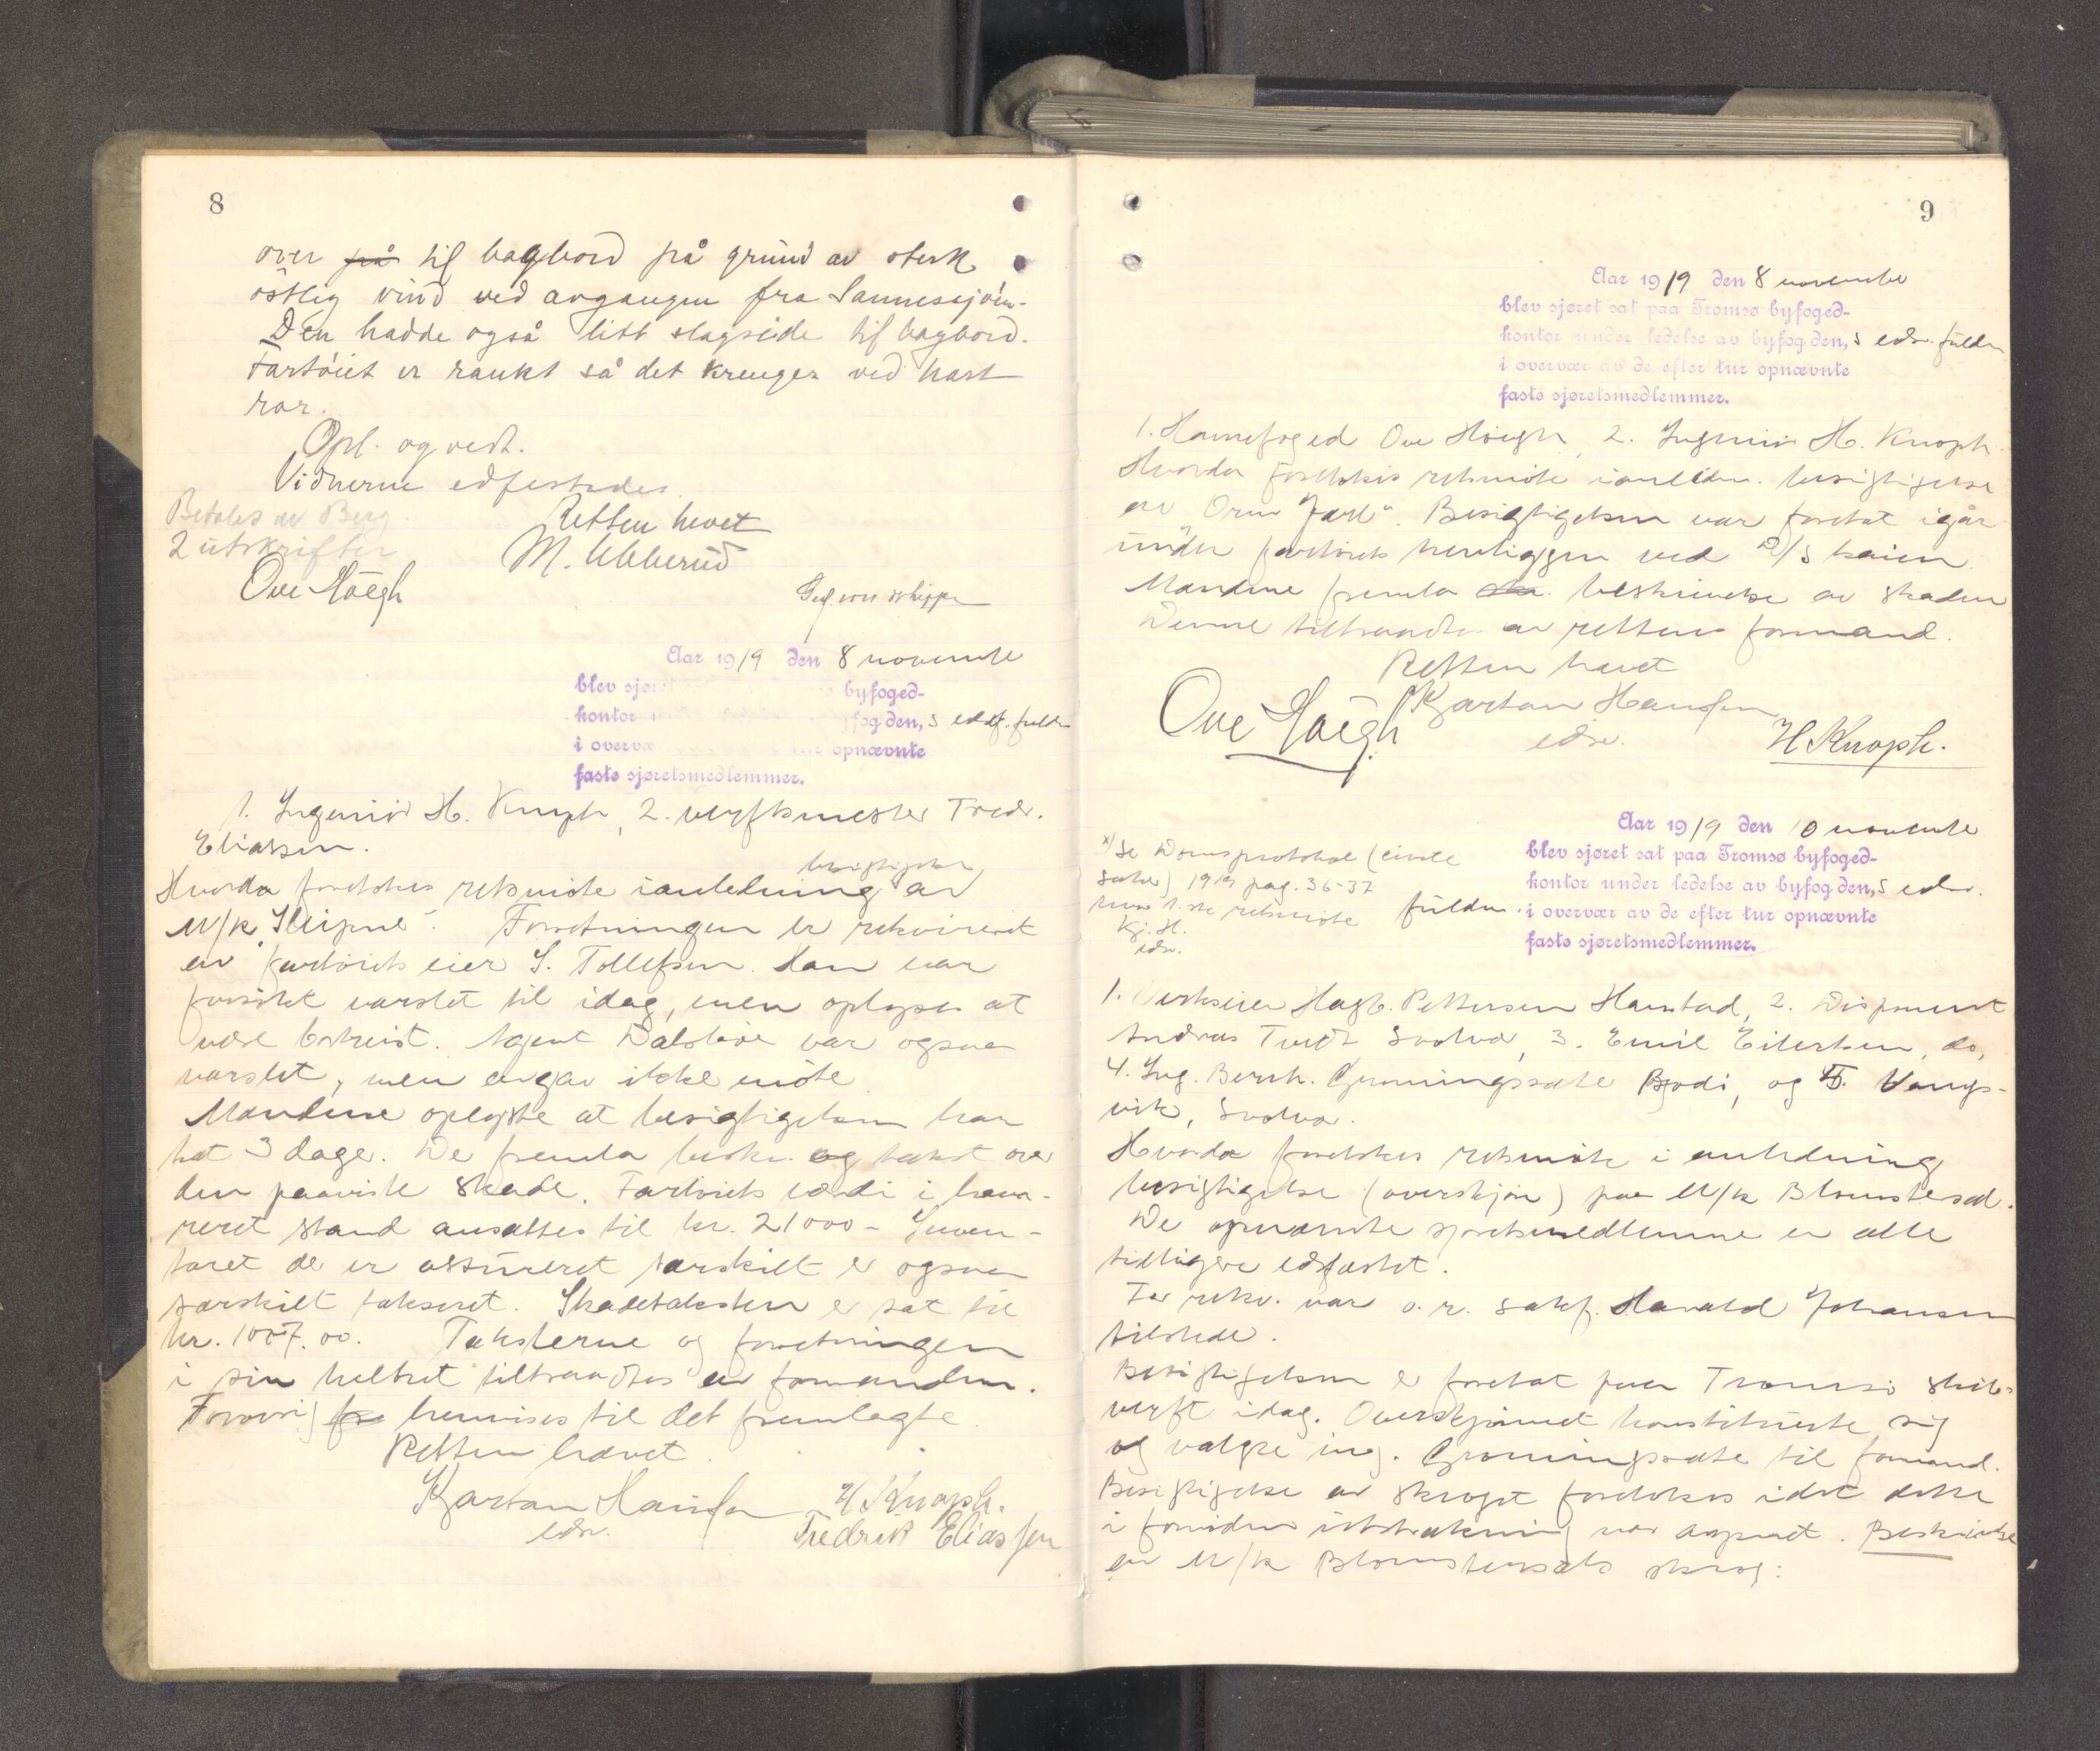 8
over på til bagbord på grund av sterk
östlig vind ved avgangen fra Sannessjöen.
Den hadde også litt slagside til bagbord.
Fartöiet er rankt så det krenger ved hart
ror.
Opl. og vedt.
Vidnerne edfestedes.
Betales av Berg.
2 utskrifter
Retten hevet
M. Ubberud
Ove Höegh
Aar 1919 den 8 novembe
blev sjøret byfoged-
kontor fogden, s edsf. fuldm
i overvær tur opnævnte
faste sjøretsmedlemmer.
1. Ingeniør H. Knoph, 2. verftsmester Fredr.
Eliassen.
besigtigelse
Hvorda foretokes retsmøte i anledning av
M/k "Sleipner". Forretningen er rekvireret
av fartøiets eier S. Tollefsen. Han var
forsøkt varslet til idag, men oplyses at
være bortreist. Agent Dalsbøe var ogsaa
varslet, men avgav ikke møte.
Mændene oplyste at besigtigelsen har
tat 3 dage. De fremla beskr. og takst over
den paaviste skade. Fartøiets værdi i hava-
reret stand ansattes til kr. 21000 - Inven-
taret der er assureret særskilt er ogsaa
særskilt takseret. Skadetaksten er sat til
kr. 1007.00. Taksterne og forretningen
i sin helhet tiltraadtes av formanden.
Forøvrig henvises til det fremlagte.
Retten hævet.
Kjartan Hansen
edsv.
H Knoph.
Fredrik Eliassen
9
Aar 1919 den 8 novembe
blev sjøret sat paa Tromsø byfoged-
kontor under ledelse av byfogden, s edsv. fuldm
i overvær av de efter tur opnævnte
faste sjøretsmedlemmer.
1. Havnefoged Ove Höegh, 2. Ingeniør H. Knoph.
Hvorda foretokes retsmøte i anledn. besigtigelse
av "Orm Jarl". Besigtigelsen var foretat igår
under fartøiets henliggen ved D/S kaien.
Mændene fremla beskrivelse av skaden
Denne tiltraadtes av rettens formand.
Retten hævet
Ove Höegh
Kjartan Hansen
edsv.
H Knoph.
Aar 1919 den 10 novembe
blev sjøret sat paa Tromsø byfoged-
kontor under ledelse av byfogden, s edsv.
fuldm. i overvær av de efter tur opnævnte
faste sjøretsmedlemmer.
x) Se Domsprotokol (civile
saker) 1919 pag. 36-37
1.ste retsmøte
Kj. H.
edsv.
1. Verkseier Hagb. Pettersen Harstad, 2. Disponent
Andreas Tvedt Svolvær, 3. Emil Eilertsen, do,
4. Ing. Bernh. Grønningsæter Bodø, og 5. Vangs-
vik, Svolvær.
Hvorda foretokes retsmøte i anledning
besigtigelse (overskjøn) paa M/k Blomstersal.
De opnævnte sjøretsmedlemme er alle
tidligere edsfæstet.
For rekv. var o.r. sakf. Harald Johansen
tilstede.
Besigtigelsen er foretat paa Tromsø skibs-
verft idag. Overskjønnet konstituerte sig
og valgte ing. Grønningsæter til formand.
Besigtigelse av skroget foretokes idet dette
i fornøden utstrækning var aapnet. Beskrivelse
av M/k Blomstersals skrog: